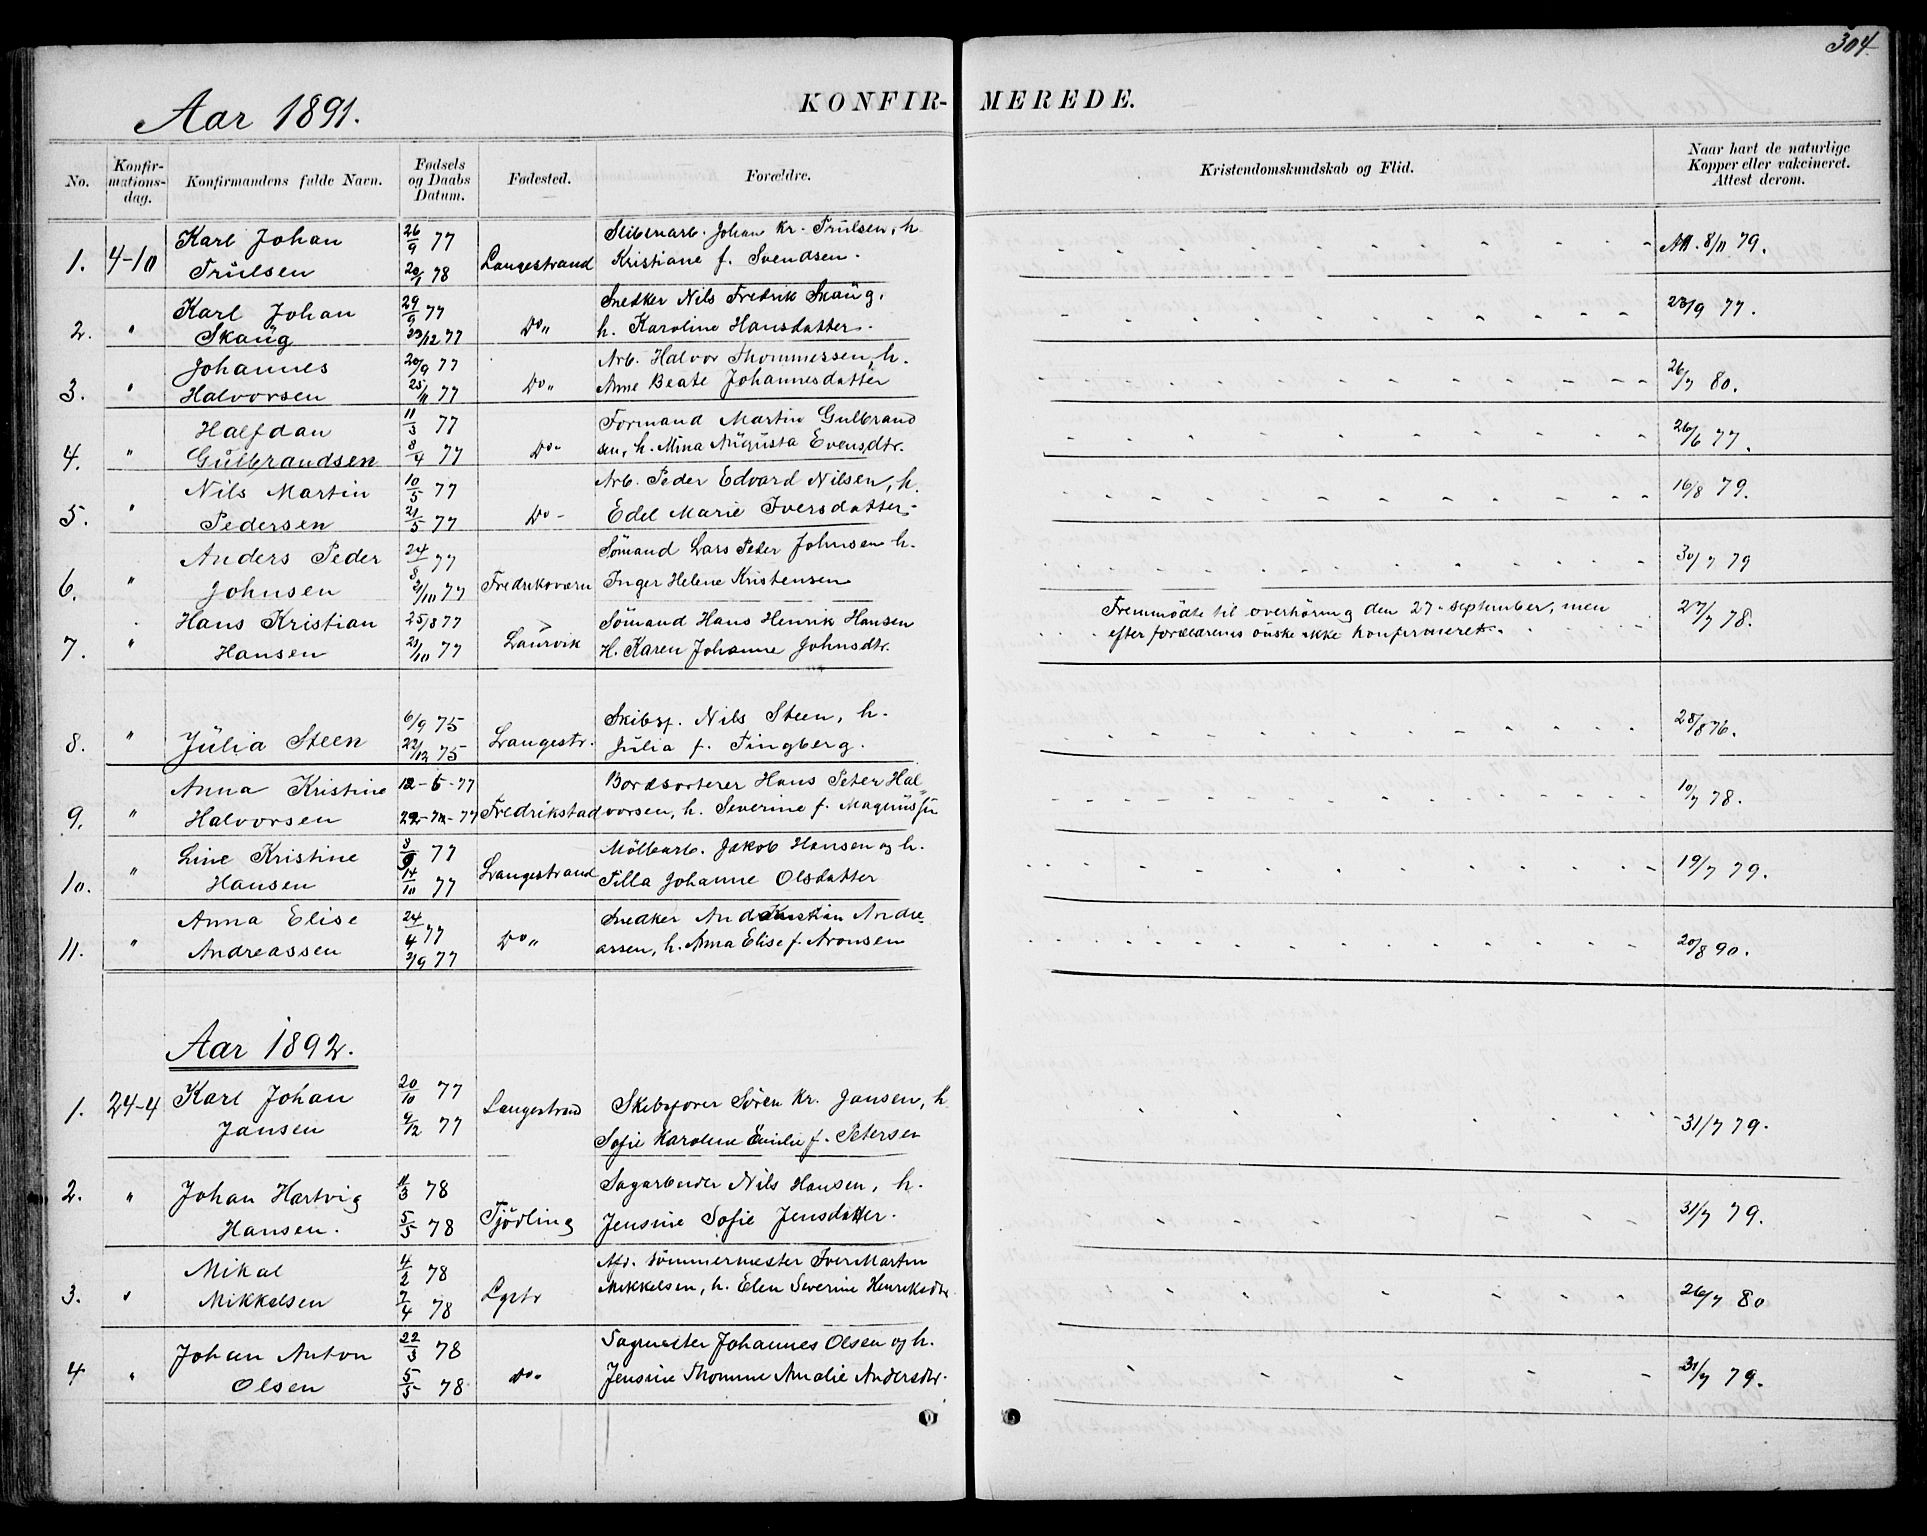 304.
Aar 1891.
KONFIR- MEREDE.
No.
Konfir-
mations-
dag.
Konfirmandens fulde Navn.
Fødsels
og Daabs
Datum.
Fødested.
Forældre.
Kristendomskundskab og Flid.
Naar havt de naturlige
Kopper eller vakcineret.
Attest derom.
1. 4-10 Karl Johan Trulsen 26/9 77 20/1 78 Langestrand Johan Kr. Trulsen, h.
Kristiane f. Svendsen. Att. 8/11 79.
2. " Karl Johan Skaug 29/9 77 29/12 77 Do " Snedker Nils Fredrik Skaug,
h. Karoline Hansdatter. 23/9 77.
3. " Johannes Halvorsen 20/9 77 25/11 77 Do " Arb. Halvor Thommessen, h.
Anne Beate Johannesdatter 26/7 80.
4. " Halfdan Gulbrandsen 11/3 77 8/4 77 Do - Formand Martin Gulbrand
sen, h. Mina Augusta Evensdtr. 26/6 77.
5. " Nils Martin Pedersen 10/5 77 21/5 77 Do - Arb. Peder Edvard Nilsen, h.
Edel Marie Iversdatter. 16/8 79.
6. " Anders Peder Johnsen 24/8 77 2/10 77 Fredriksværn Sömand Lars Peder Johnsen h.
Inger Helene Kristensen 30/7 79
7. " Hans Kristian Hansen 25/8 77 21/10 77 Laurvik Sömand Hans Henrik Hansen
H. Karen Johanne Johnsdtr.
Fremmödte til overhöring den 27. september, men
efter forældrenes önske ikke konfirmeret. 27/7 78.
8. " Julia Steen 6/9 75 22/12 75 Langestr. Skibsf. Nils Steen, h.
Julia f. Tingberg. 28/8 76.
9. " Anna Kristine Halvorsen 12-5-77 Fredrikstad Bordsorterer Hans Peter Hal=
vorsen, h. Severine f. 10/7 78.
10. " Line Kristine Hansen 8/9 77 14/10 77 Langestrand Möllearb. Jakob Hansen og h.
Tilla Johanne Olsdatter 19/7 79.
11. " Anna Elise Andreassen 24/4 77 2/9 77 Do " Snedker Andre-
assen, h. Anna Elise f. Aronsen 20/8 90.
Aar 1892.
1. 24-4 Karl Johan Jansen 20/10 77 9/12 77 Langestrand Skibsfører Sören Kr. Jansen, h.
Sofie Karoline Emilie f. Petersen 31/7 79.
2. " Johan Hartvig Hansen. 11/3 78 5/5 78 Tjödling Sagarbeider Nils Hansen, h.
Jensine Sofie Jensdatter. 31/7 79.
3. " Mikal Mikkelsen 4/2 78 7/4 78 Lgstr Afd. Tömmermester Iver Martin
Mikkelsen, h. Elen Severine Henriksdtr. 26/7 80
4 " Johan Anton Olsen 22/3 78 5/5 78 do " Sagmester Johannes Olsen og h.
Jensine Thomine Amalie Andersdtr. 31/7 79.